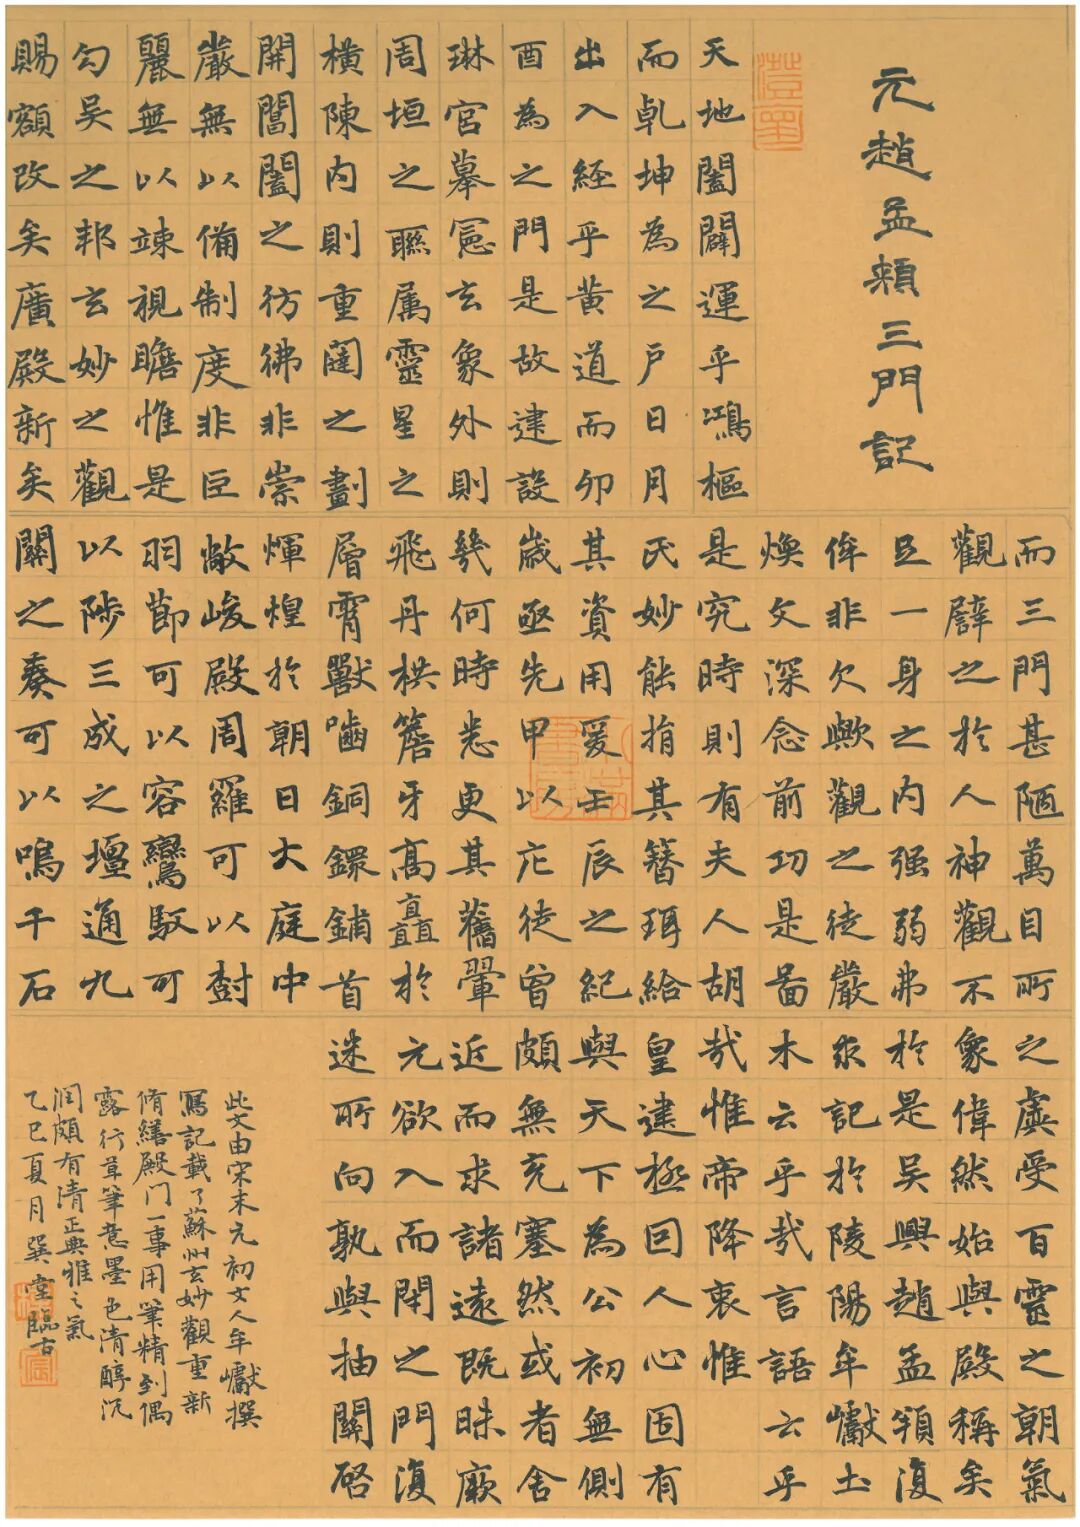 元趙孟頫三門記
天地闔闢運乎鴻樞
而乹坤為之户日月
出入經乎黄道而卯
酉為之門是故建設
琳宫摹憲玄象外則
周垣之聮属靈星之
横陳内則重闥之劃
開閶闔之彷彿非崇
嚴無以備制度非巨
麗無以竦視瞻惟是
勾吴之邦玄妙之觀
賜額改矣廣殿新矣
而三門甚陋萬目所
觀譬之於人神觀不
足一身之内强弱弗
侔非欠歟觀之徒嚴
焕文深念前功是啚
是究時則有夫人胡
氏妙能捐其簪珥給
其資用爰壬辰之紀
歲亟先甲以庀徒曾
幾何時悉更其舊翬
飛丹栱簷牙髙矗於
層霄獸嚙銅鐶鋪首
煇煌於朝日大庭中
敞峻殿周羅可以樹
羽節可以容鸞馭可
以陟三成之壇通九
關之奏可以鳴千石
之虡受百靈之朝氣
象偉然始與殿稱矣
於是吴興趙孟頫復
求記於陵陽牟巘土
木云乎哉言語云乎
哉惟帝降衷惟
皇建極回人心固有
與天下為公初無側
頗無充塞然或者舍
近而求諸遠既昧厥
元欲入而閉之門復
迷所向孰與抽關啓
此文由宋末元初文人牟巘撰
寫記載了蘇州玄妙觀重新
脩繕殿门一事用筆精到偶
露行草筆意墨色清醇沉
润頗有清正典雅之氣
乙巳夏月巽堂臨古